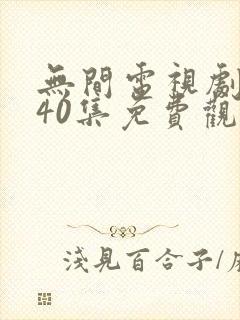 無間電視劇
40集免費觀
淺見百合子/